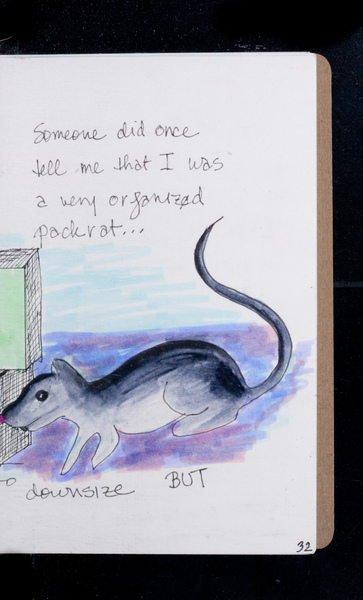 Someone did once
tell me that I was
a very organized
packrat...
downsize BUT
32